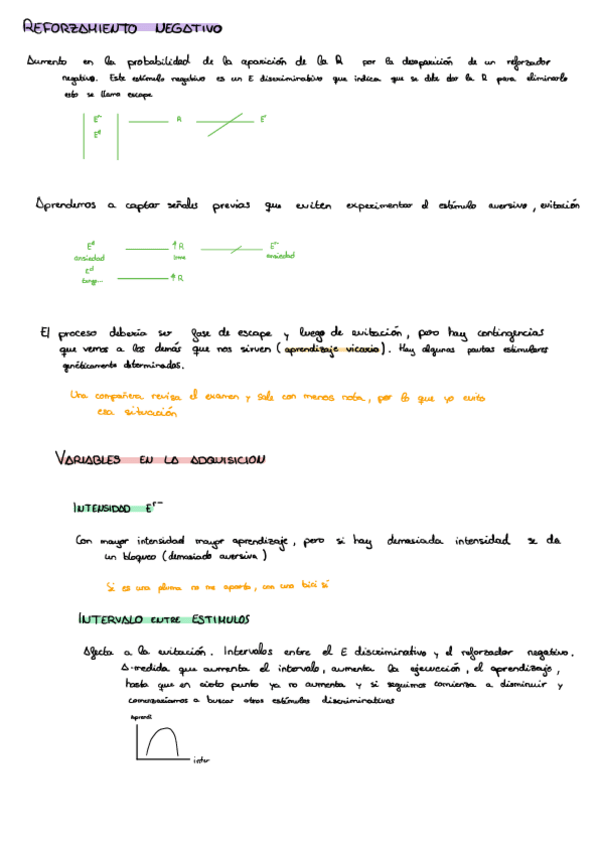 REFORZAMIENTO NEGATIVO
Aumento en la probabilidad de la aparición de la R por la desaparición de un reforzador
negativo. Este estímulo negativo es un E discriminativo que indica que se debe dar la R para eliminarlo
esto se llama escape
E^r- R E^r
E^d
Aprendemos a captar señales previas que eviten experimentar el estímulo aversivo, evitación
E^d ↑R E^r-
ansiedad ansiedad
E^d
↑R
El proceso debería ser fase de escape y luego de evitación, pero hay contingencias
que vemos a los demás que nos sirven (aprendizaje vicario). Hay algunas pautas estimulares
genéticamente determinadas.
Una compañera revisa el examen y sale con menos nota, por lo que yo evito
esa situación
VARIABLES EN LA ADQUISICION
INTENSIDAD E^r-
Con mayor intensidad mayor aprendizaje, pero si hay demasiada intensidad se da
un bloqueo (demasiado aversiva)
Si es una pluma no me aparto, con una bici sí
INTERVALO ENTRE ESTIMULOS
Afecta a la evitación. Intervalos entre el E discriminativo y el reforzador negativo.
A medida que aumenta el intervalo, aumenta la ejecución, el aprendizaje,
hasta que en cierto punto ya no aumenta y si seguimos comienza a disminuir y
comenzaríamos a buscar otros estímulos discriminativos
Aprendi
inter